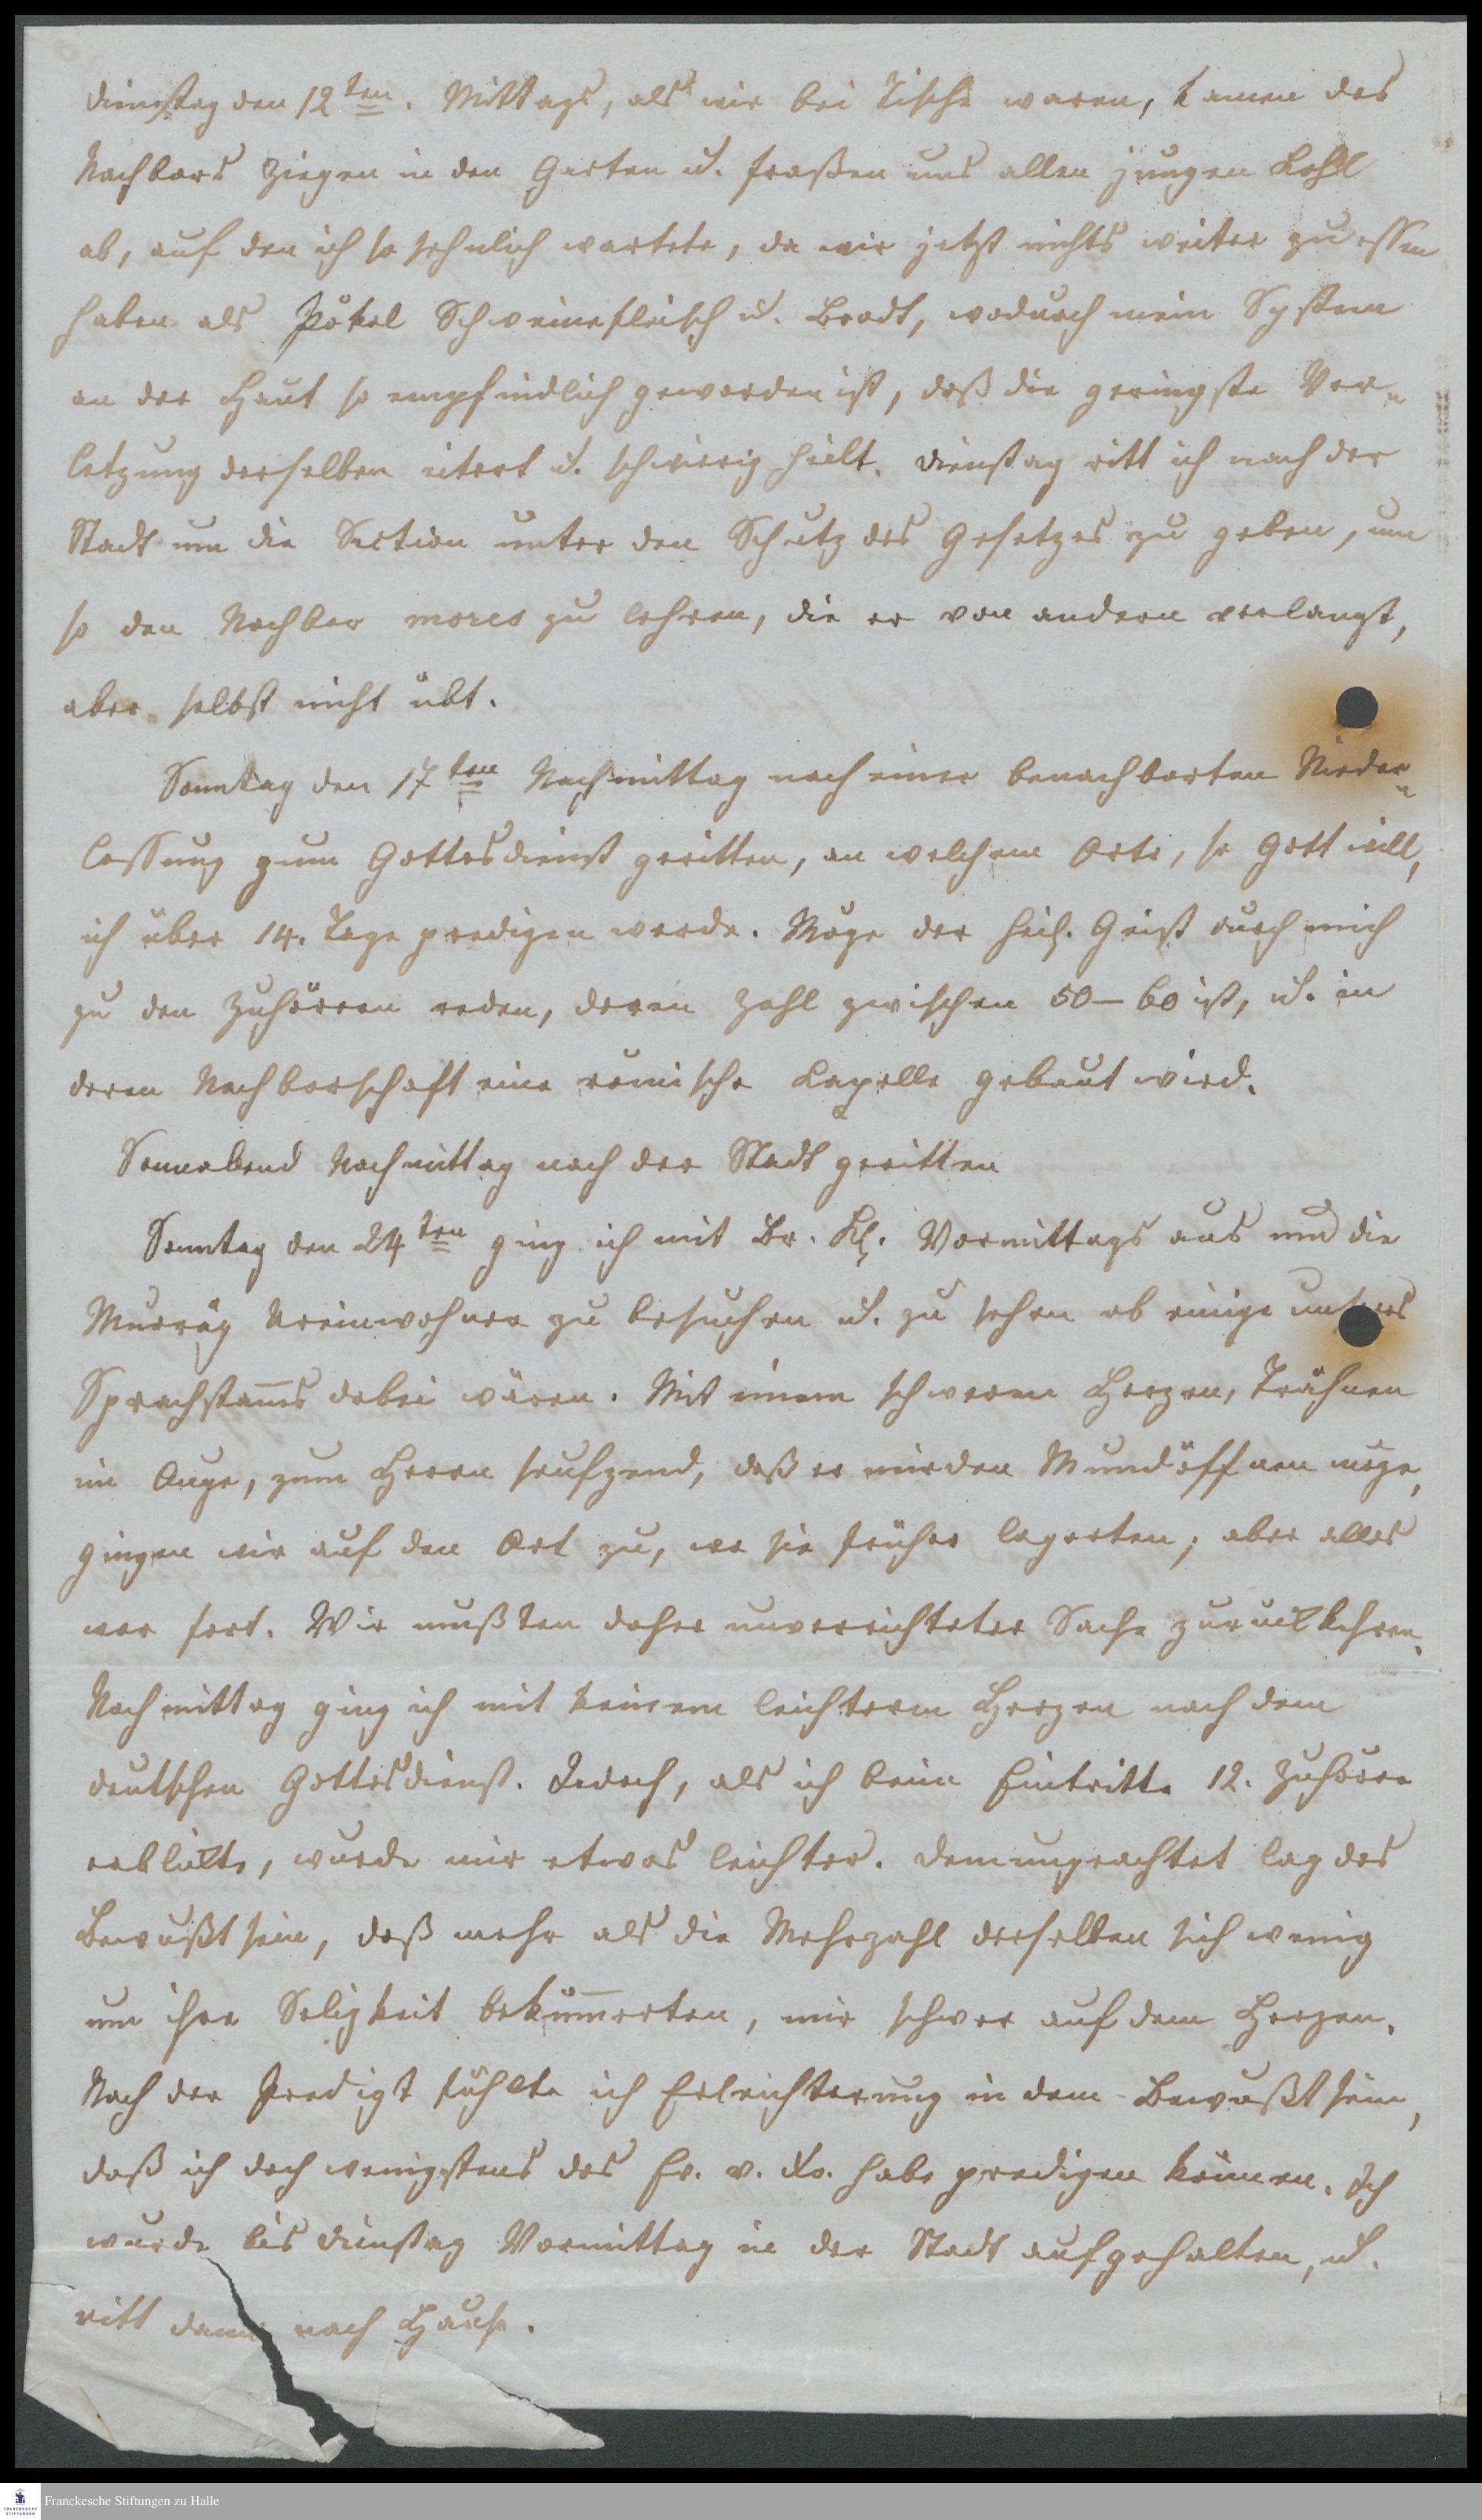 Dienstag den 12ten. Mittags, als wir bei Tische waren, kamen des
Nachbars Ziegen in den Garten u. fraßen uns allen jungen Kohl
ab, auf den ich so sehnlich wartete, da wir jetzt nichts weiter zu essen
haben als Pökel Schweinefleisch u. Brodt, wodurch mein System
an der Haut so empfindlich geworden ist, daß die geringste Ver-
letzung derselben eitert u. schwierig heilt. Dienstag ritt ich nach der
Stadt um die Section unter den Schutz des Gesetzes zu geben, um
so den Nachbar mores zu lehren, die er von andern verlangt,
aber selbst nicht übt.
Sonntag den 17ten Nachmittag nach einer benachbarten Nieder-
lassung zum Gottesdienst geritten, an welchem Orte, so Gott will,
ich über 14. Tage predigen werde. Möge der heil. Geist durch mich
zu den Zuhörern reden, deren Zahl zwischen 50–60 ist, u. in
deren Nachbarschaft eine römische Kapelle gebaut wird.
Sonnabend Nachmittag nach der Stadt geritten
Sonntag den 24ten ging ich mit Br. Kl. Vormittags aus um die
Murray Ureinwohner zu besuchen u. zu sehen ob einige unsres
Sprachstams dabei wären. Mit einem schweren Herzen, Trähnen
im Auge, zum Herrn seufzend, daß er mir den Mund öffnen möge,
gingen wir auf den Ort zu, wo sie früher lagerten; aber alles
war fort. Wir mußten daher unverrichteter Sache zurückkehren.
Nachmittag ging ich mit keinem leichtern Herzen nach dem
deutschen Gottesdienst. Jedoch, als ich beim Eintritte 12. Zuhörer
erblickte, wurde mir etwas leichter. Demungeachtet lag das
Bewußtsein, daß mehr als die Mehrzahl derselben sich wenig
um ihre Seligkeit bekümerten, mir schwer auf dem Herzen.
Nach der Predigt fühlte ich Erleichterung in dem Bewußtsein,
daß ich doch wenigstens das Ev. v. Xo. habe predigen können. Ich
wurde bis Dienstag Vormittag in der Stadt aufgehalten, u.
ritt dann nach Hause.
FRANCKESCHE STIFTUNGEN
Franckesche Stiftungen zu Halle